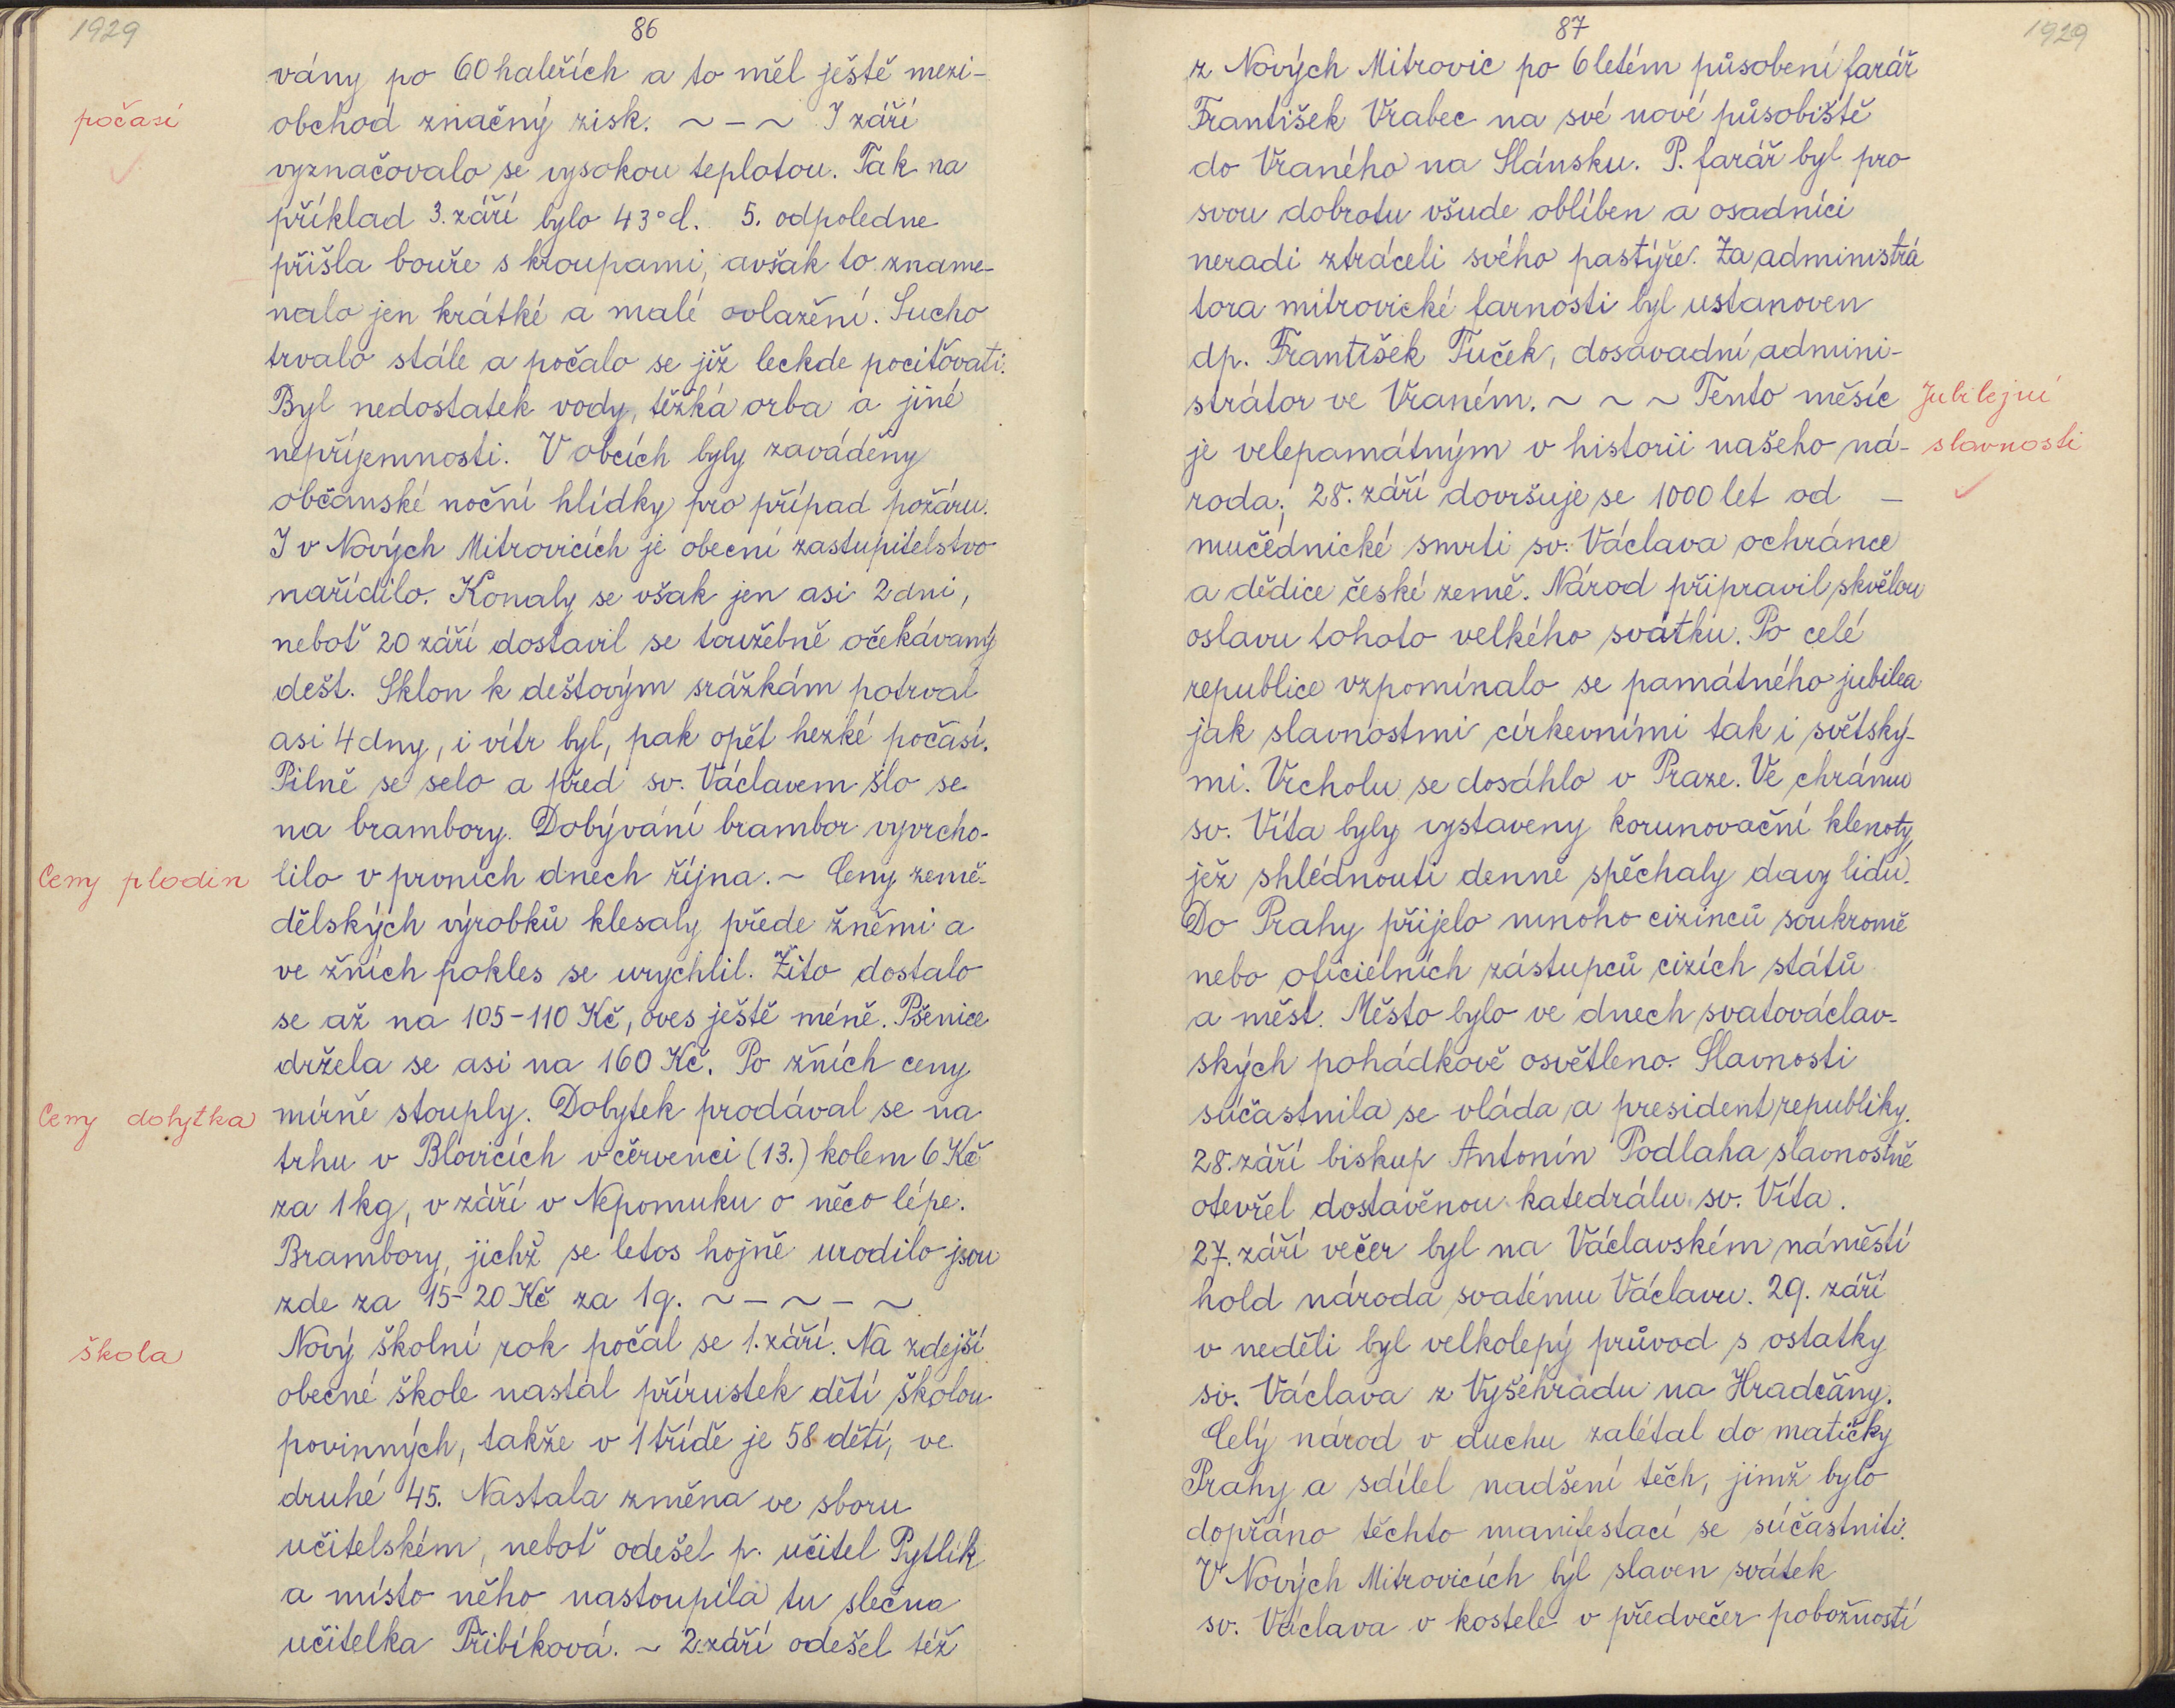 1929
86
vány po 60 haleřích a to měl ještě mezi-
počasí
obchod značný zisk. ~ – ~ I září
vyznačovalo se vysokou teplotou. Tak na
příklad 3. září bylo 43° d. 5. odpoledne
přišla bouře s kroupami, avšak to zname-
nalo jen krátké a malé ovlažení. Sucho
trvalo stále a počalo se již leckde pociťovati.
Byl nedostatek vody, těžká orba a jiné
nepříjemnosti. V obcích byly zaváděny
občanské noční hlídky pro případ požáru.
I v Nových Mitrovicích je obecní zastupitelstvo
nařídilo. Konaly se však jen asi 2 dni,
neboť 20 září dostavil se toužebně očekávaný
dešt. Sklon k deštovým srážkám potrval
asi 4 dny, i vítr byl, pak opět hezké počasí.
Pilně se selo a před sv. Václavem šlo se
na brambory. Dobývání brambor vyvrcho-
Ceny plodin
lilo v prvních dnech října. ~ Ceny země-
dělských výrobků klesaly přede žněmi a
ve žních pokles se urychlil. Žito dostalo
se až na 105–110 Kč, oves ještě méně. Pšenice
držela se asi na 160 Kč. Po žních ceny
Ceny dobytka
mírně stouply. Dobytek prodával se na
trhu v Blovicích v červenci (13.) kolem 6 Kč
za 1 kg, v září v Nepomuku o něco lépe.
Brambory, jichž se letos hojně urodilo jsou
zde za 15–20 Kč za 1 q. ~ – ~ – ~
škola
Nový školní rok počal se 1. září. Na zdejší
obecné škole nastal přírustek dětí školou
povinných, takže v 1 třídě je 58 dětí, ve
druhé 45. Nastala změna ve sboru
učitelském, neboť odešel p. učitel Pytlík
a místo něho nastoupila tu slečna
učitelka Přibíková. ~ 2. září odešel též
87
1929
z Nových Mitrovic po 6 letém působení farář
František Vrabec na své nové působiště
do Vraného na Slánsku. P. farář byl pro
svou dobrotu všude oblíben a osadníci
neradi ztráceli svého pastýře. Za administrá
tora mitrovické farnosti byl ustanoven
dp. František Tuček, dosavadní admini-
strátor ve Vraném. ~ ~ ~ Tento měsíc
Jubilejní
je velepamátným v historii našeho ná-
slavnosti
roda; 28. září dovršuje se 1000 let od –
mučednické smrti sv. Václava ochránce
a dědice české země. Národ připravil skvělou
oslavu tohoto velkého svátku. Po celé
republice vzpomínalo se památného jubilea
jak slavnostmi církevními tak i světský-
mi. Vrcholu se dosáhlo v Praze. Ve chrámu
sv. Víta byly vystaveny korunovační klenoty,
jež shlédnouti denně spěchaly davy lidu.
Do Prahy přijelo mnoho cizinců soukromě
nebo oficielních zástupců cizích států
a měst. Město bylo ve dnech svatováclav-
ských pohádkově osvětleno. Slavnosti
súčastnila se vláda a president republiky.
28. září biskup Antonín Podlaha slavnostně
otevřel dostavěnou katedrálu sv. Víta.
27. září večer byl na Václavském náměstí
hold národa svatému Václavu. 29. září
v neděli byl velkolepý průvod s ostatky
sv. Václava z Vyšehradu na Hradčany.
Celý národ v duchu zalétal do matičky
Prahy a sdílel nadšení těch, jimž bylo
dopřáno těchto manifestací se súčastniti.
V Nových Mitrovicích byl slaven svátek
sv. Václava v kostele v předvečer pobožností